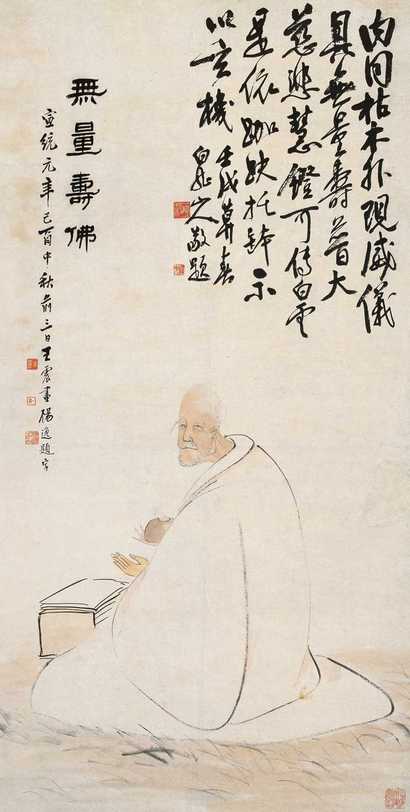 內同枯木外現威儀
具無量壽普大
慈悲慧鐙可傳白雲
是依跏趺托缽示
以玄機 壬戌莫春
白龍山人敬題
無量壽佛
宣統元年己酉中秋前三日王震畫楊逸題字